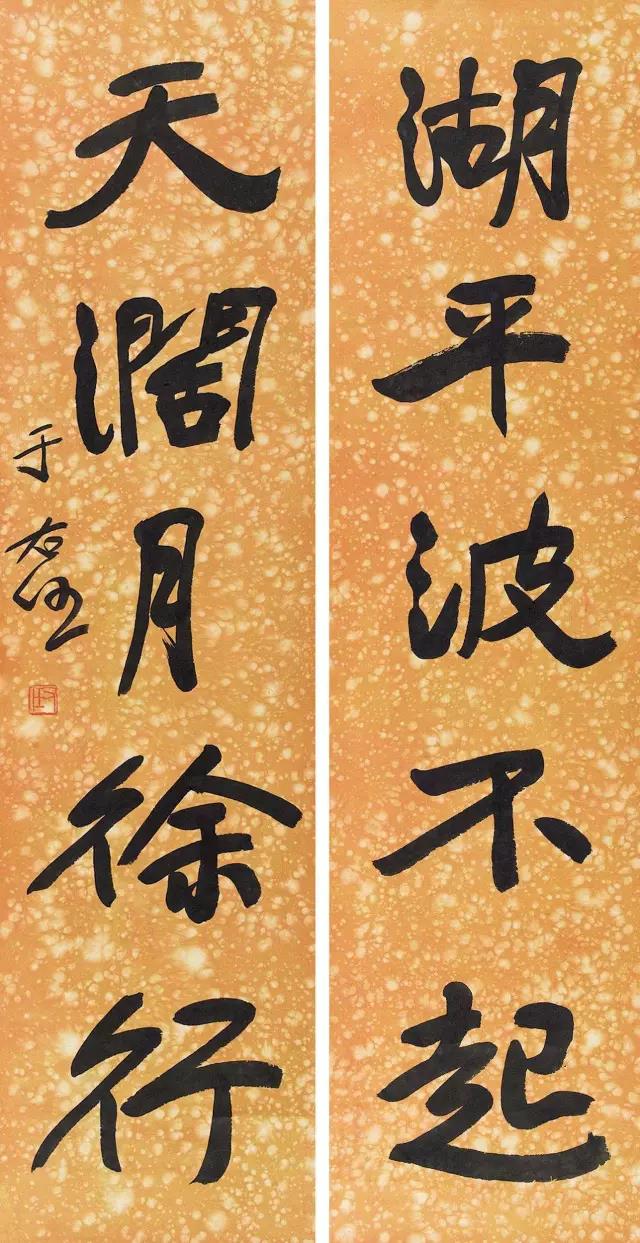 湖平波不起
天濶月徐行
于右任